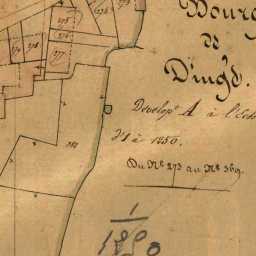 Bourg
de
Dingé.
Develop.t A à l'Ech
d'1 à 1250.
Du N.º 273 au N.º 369.
1
1250
276
275
274
278
277
281